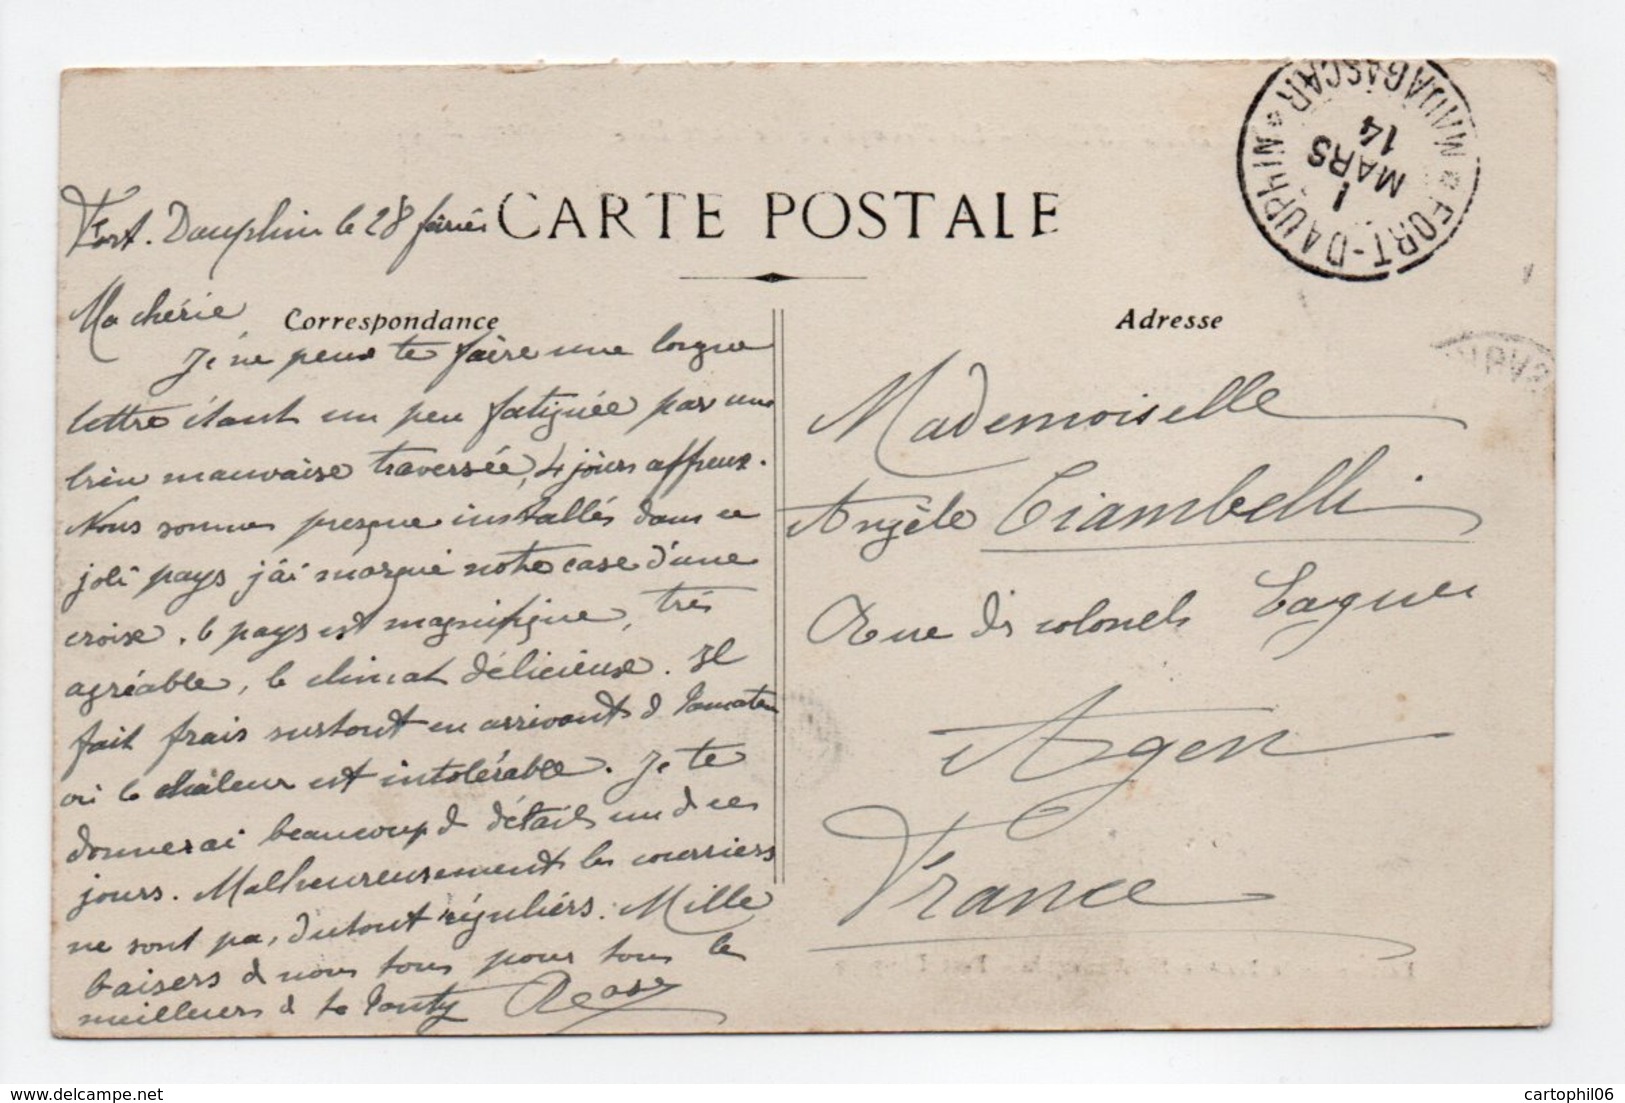 CARTE POSTALE
Fort-Dauphin le 28 février
Correspondance
Ma chérie
Je ne peux te faire une longue
lettre étant un peu fatiguée par une
bien mauvaise traversée, 4 jours affreux.
Nous sommes presque installés dans ce
joli pays j'ai marqué notre case d'une
croise. le pays est magnifique, très
agréable, le climat délicieuse. Il
fait frais surtout en arrivant de Tamatave
où la chaleur est intolérable. Je te
donnerai beaucoup de détails un de ces
jours. Malheureusement les courriers
ne sont pas du tout réguliers. Mille
baisers de nous tous pour tous les
meilleurs de ta Tanty
Adresse
Mademoiselle
Angèle Ciambelli
Rue des colonels
Agen
France
FORT-DAUPHIN * MADAGASCAR *
1
MARS
14
cartophil06